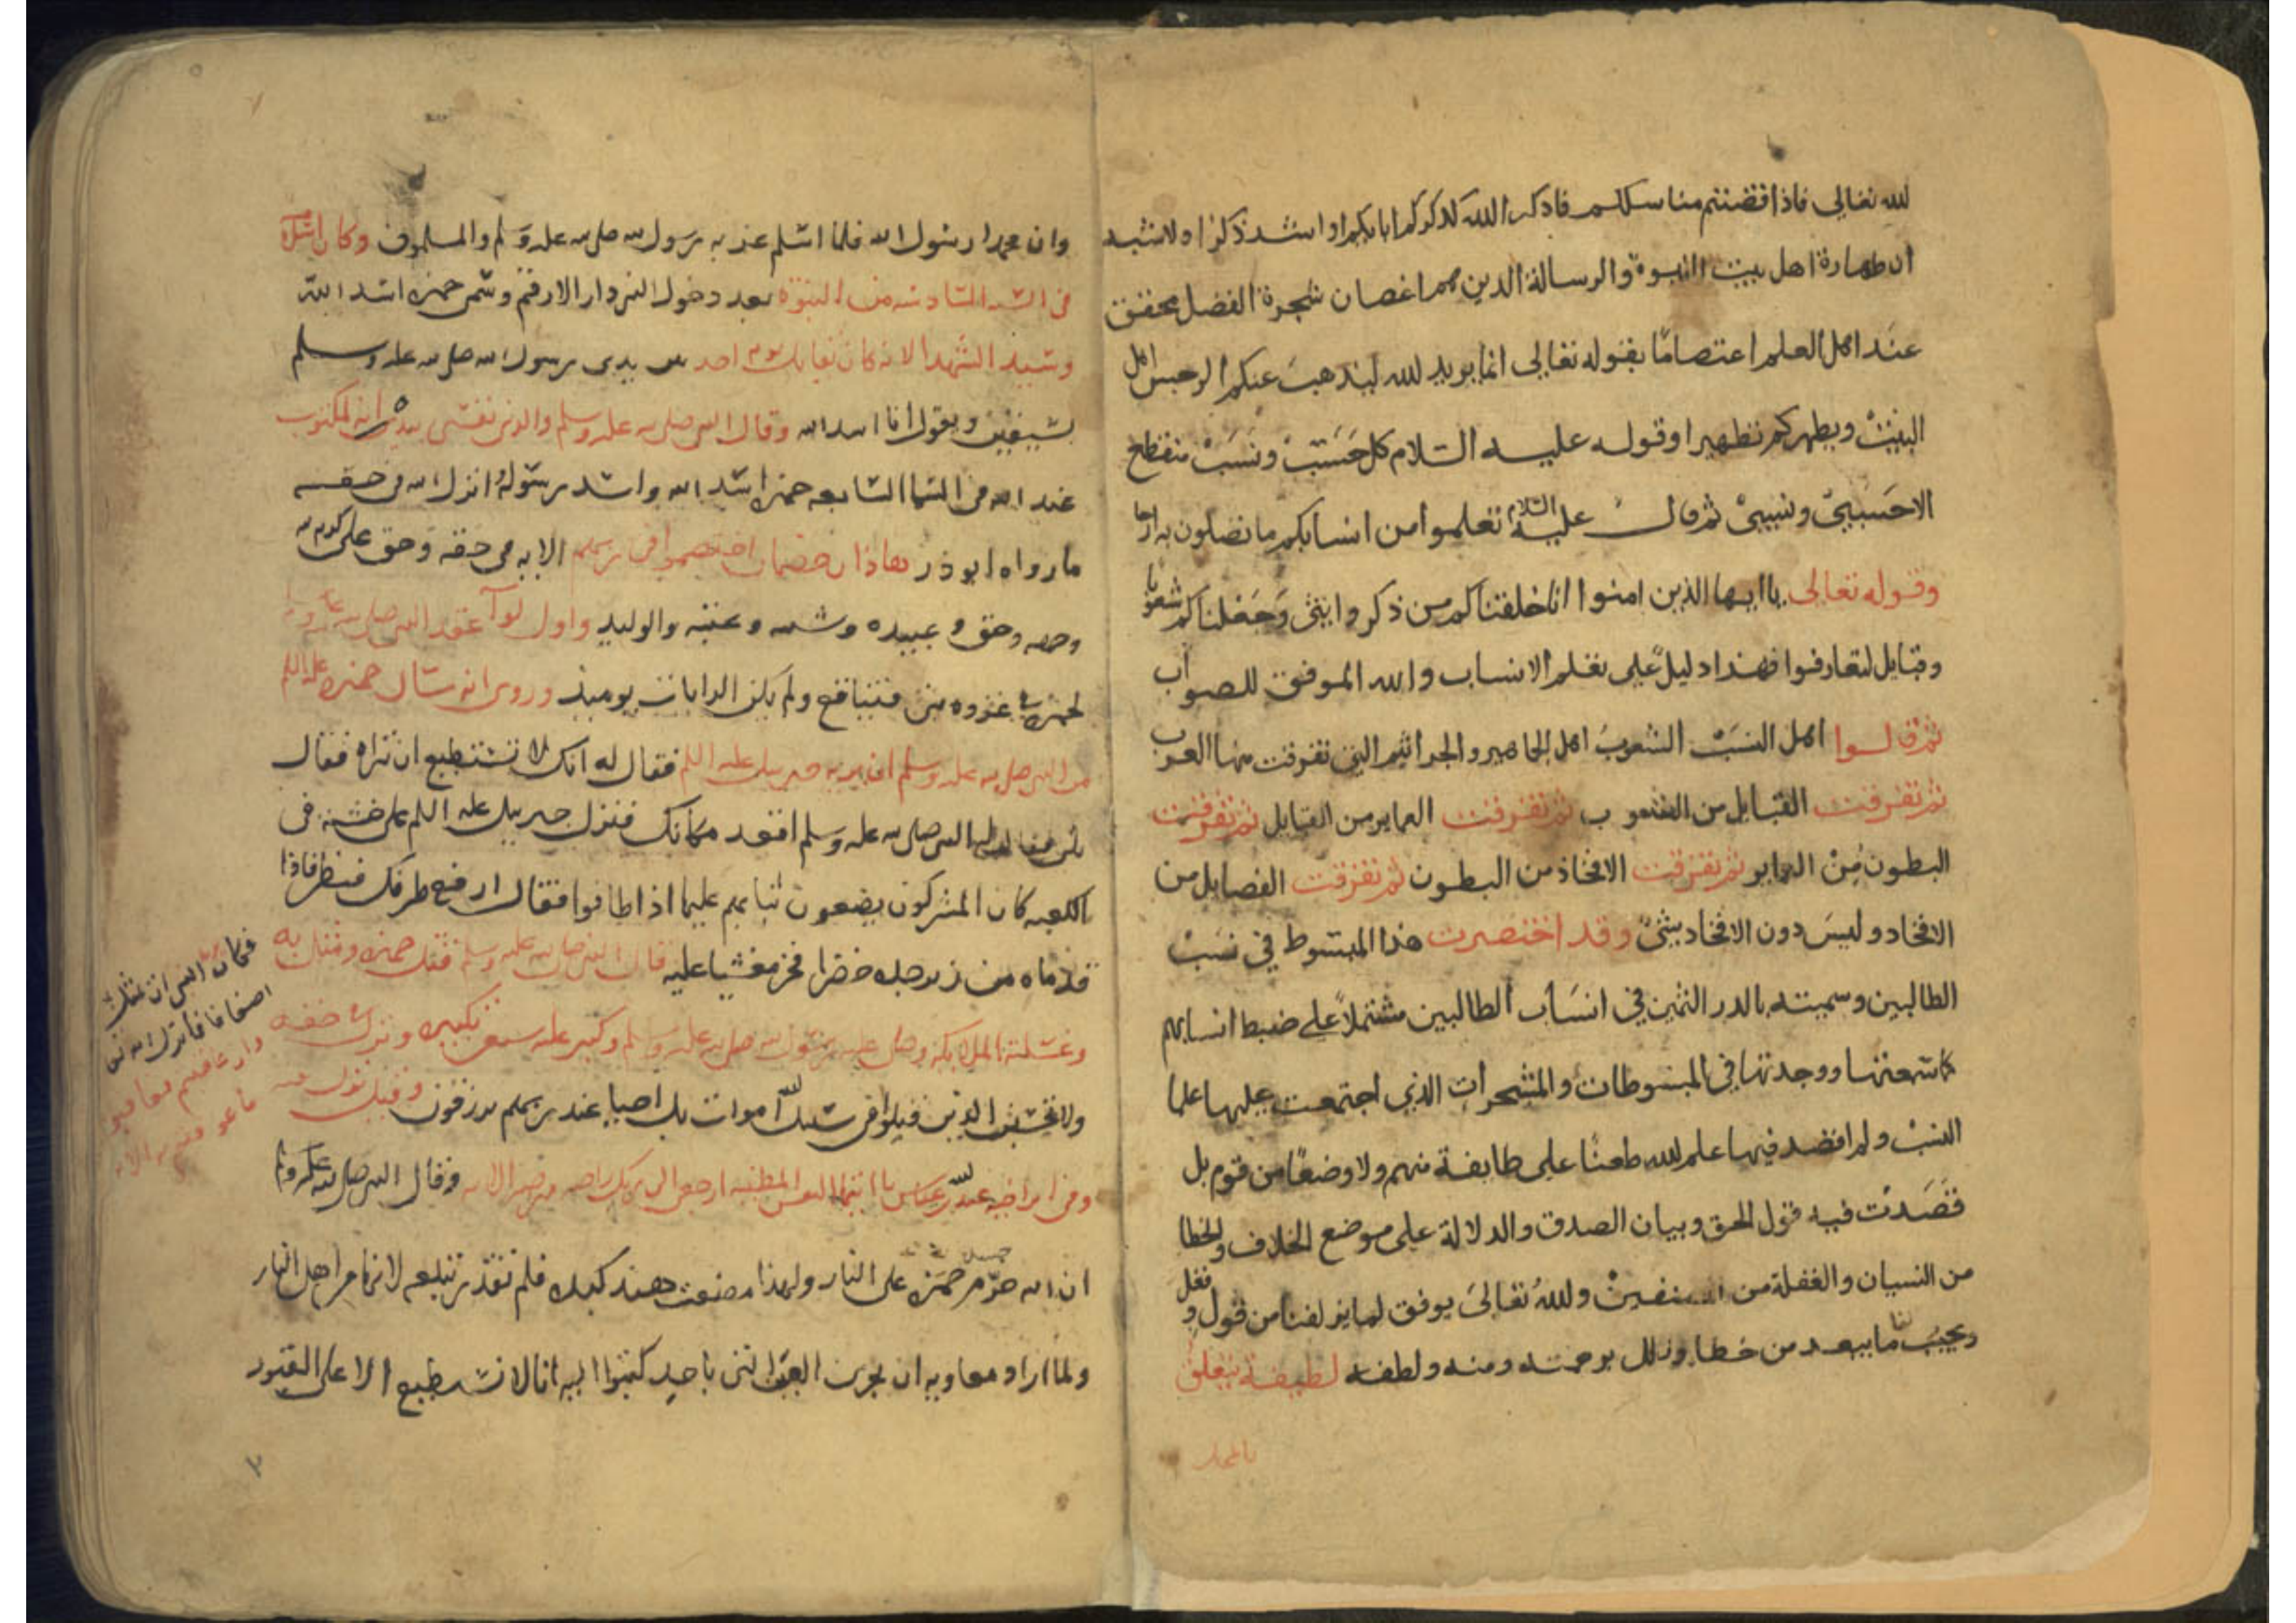 لله تعالى فاذا قضيتم مناسككم فاذكروا الله كذكركم اباءكم او اشد ذكرا ولا شبه
ان طهارة اهل بيت النبوة والرسالة الذين هم اغصان شجرة الفضل محقق
عند اهل العلم اعتصامًا بقوله تعالى انما يريد لله ليذهب عنكم الرجس اهل
البيت ويطهركم تطهيرا وقوله عليه السلام كل حَسَبْ ونَسَبْ منقطع
الا حَسَبيّ ونسبيْ ثم قال عليه السلام تعلموا من انسابكم ما تصلون به ارحا
وقوله تعالى يا ايها الذين امنوا انا خلقناكم من ذكر وانثى وَجَعَلناكم شعوبا
وقبايل لتعارفوا فهذا دليلٌ على تعلم الانساب والله الموفق للصواب
ثم قالوا اهل النسَبْ الشعوبُ اهل الجماهير والجراثيم التى تفرقت منها العرب
ثم تفرقت القبايل من الشعوب ثم تفرقت العماير من القبايل ثم تفرقت
البطون مِنْ العماير ثم تفرقت الافخاذ من البطون ثم تفرقت الفصايل من
الافخاد وليسَ دون الافخاد شىٌ وقد اختصرت هذا المبسوط في نسَبْ
الطالبين وسميته بالدر الثمين في انسَاب الطالبين مشتملًا على ضبط انسابهم
كما سمعتها ووجدتها في المبسوطات والمشجرات الذي اجتمعت عليها علما
النسبْ ولم اقصد فيها علم لله طعنًا على طايفة منهم ولا وضعًا من قوم بل
قصَدْت فيه قول الحق وبيان الصدق والدلالة على موضع الخلاف والخطا
من النسيان والغفلة من ولله تعالىَ يوفق لما يزلفنا من قول وفعل
ويجنبنا ما يبعد من خطا وزلل برحمته ومنه ولطفه لطيفة يتعلق
وان محمدا رسول الله فلما اسلم عز به رسول الله صلى الله عليه وسلم والمسلمون وكان اسلامه
فى السنة السادسه من النبوة بعد دخول النبى دار الارقم وسمى حمزه اسد الله
وسيد الشهدا لانه كان يقاتل يوم احد بين يدى رسول الله صلى الله عليه وسلم
بسيفين ويقول انا اسد الله وقال النبى صلى الله عليه وسلم والذى نفسى بيده انه لمكتوب
عند الله فى السما السابعه حمزه اسد الله واسد رسوله انزل الله فى حقه
ما رواه ابو ذر هاذان خصمان اختصموا فى ربهم الايه فى حقه وحق على كرم
وحق عبيده وشيبه وعتبه والوليد واول لوآ عقد النبى صلى الله عليه وسلم
لحمزه غزوه بنى قينباقع ولم يكن الرايات يوميذ وروى انه سال حمزه عليه السلم
من النبى صلى الله عليه وسلم ان يريه جبريل عليه السلم فقال له انك لا تستطيع ان تراه فقال
بلى فقال له النبى صلى الله عليه وسلم اقعد مكانك فنزل جبريل عليه السلم على خشبه فى
الكعبه كان المشركون يضعون ثيابهم عليها اذا طافوا فقال ارفع طرفك فنظر فاذا
قدماه من زبرجده خضرا فخر مغشيا عليه قال النبى صلى الله عليه وسلم قتل حمزه ومثل به
وغسلته الملايكه وصلى عليه رسول الله صلى الله عليه وسلم وكبر عليه سبعين تكبيره ونزل حقه
ولا تحسبن الذين قتلوا فى سبيل الله اموات بل احيا عند ربهم يرزقون وقيل نزل
عبد الله بن عباس يا ايتها النفس المطمينه ارجعى الى ربك راضيه مرضيه الايه وقال النبى صلى الله عليه وسلم
ان الله حرّم حمزه على النار ولهذا مضغت هند كبده فلم تقدر تبلعه لانها من اهل النار
ولما اراد معاويه ان يجرى العين التى باحد كتبوا اليه انا لا نستطيع الا على القبور